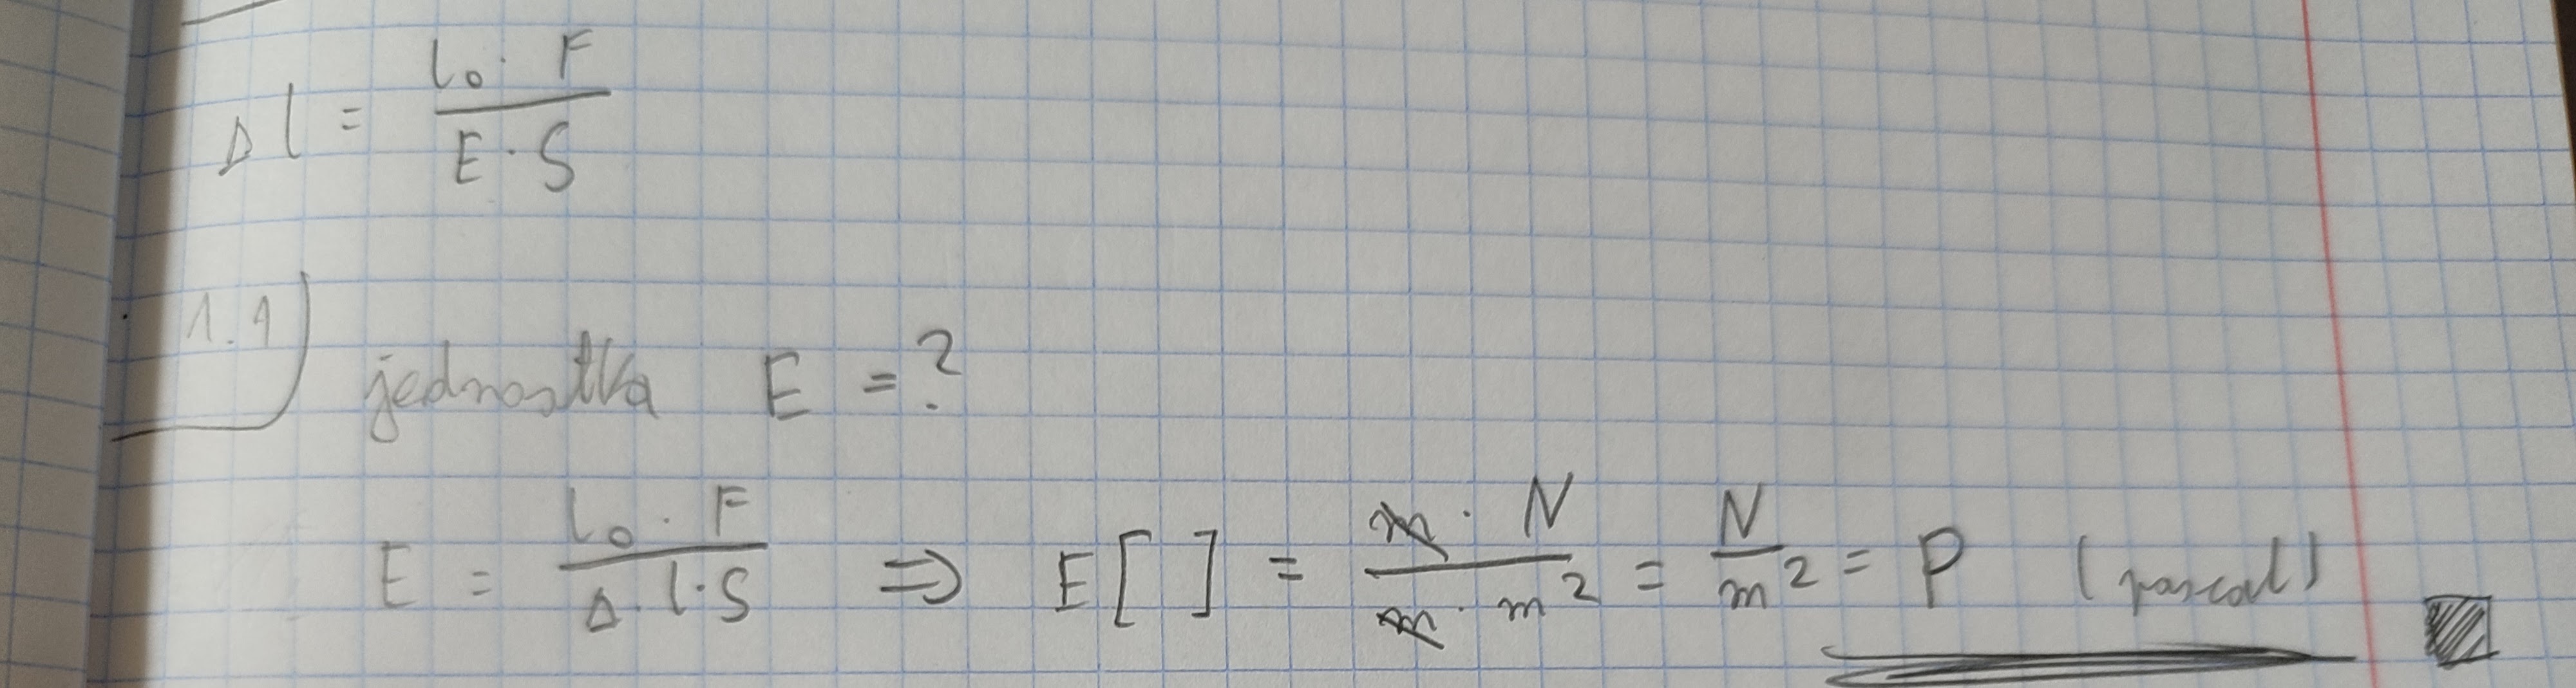 Δl = (l₀ · F) / (E · S)
1.1) jednostka E = ?
E = (l₀ · F) / (Δ l · S) ⇒ E[ ] = (m · N) / (m · m²) = N / m² = P (pascal)